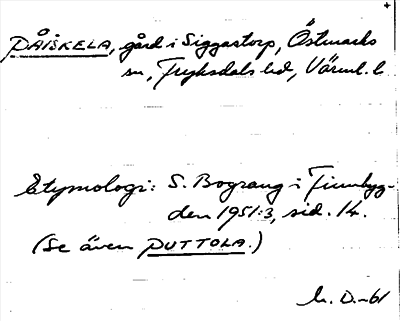 PÅISKELA, gård i Siggastorp, Östmarks
sn, Fryksdals hd, Värml. l.
Etymologi: S. Bograng i Finnbyg-
den 1951:3, sid. 14.
(Se även PUTTOLA.)
M. D. -61